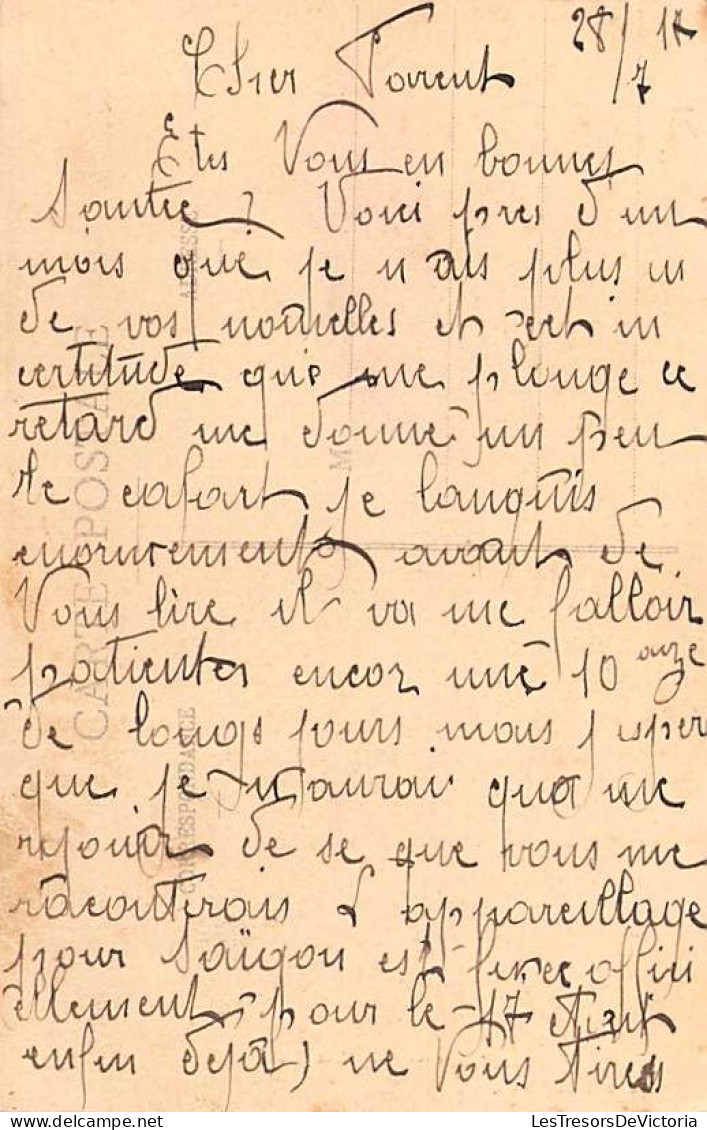 28/7 17
Cher Parent
Etes Vous en bonnes
Santée ? Voici pres d'un
mois que je n ais plus eu
de vos nouvelles et cet in
certitude que me plonge ce
retard me donne un peu
le cafart je languis
enormements avant de
Vous lire il va me falloir
patienter encor une 10 aine
de longs jours mais j esper
que je n'aurai qua me
rejouir de se que vous me
raconterais L appareillage
pour Saïgon est fixée offici
ellement pour le 17
enfin dejà) ne Vous
CARTE POSTALE
CORRESPONDANCE
ADRESSE
LesTresorsDeVictoria